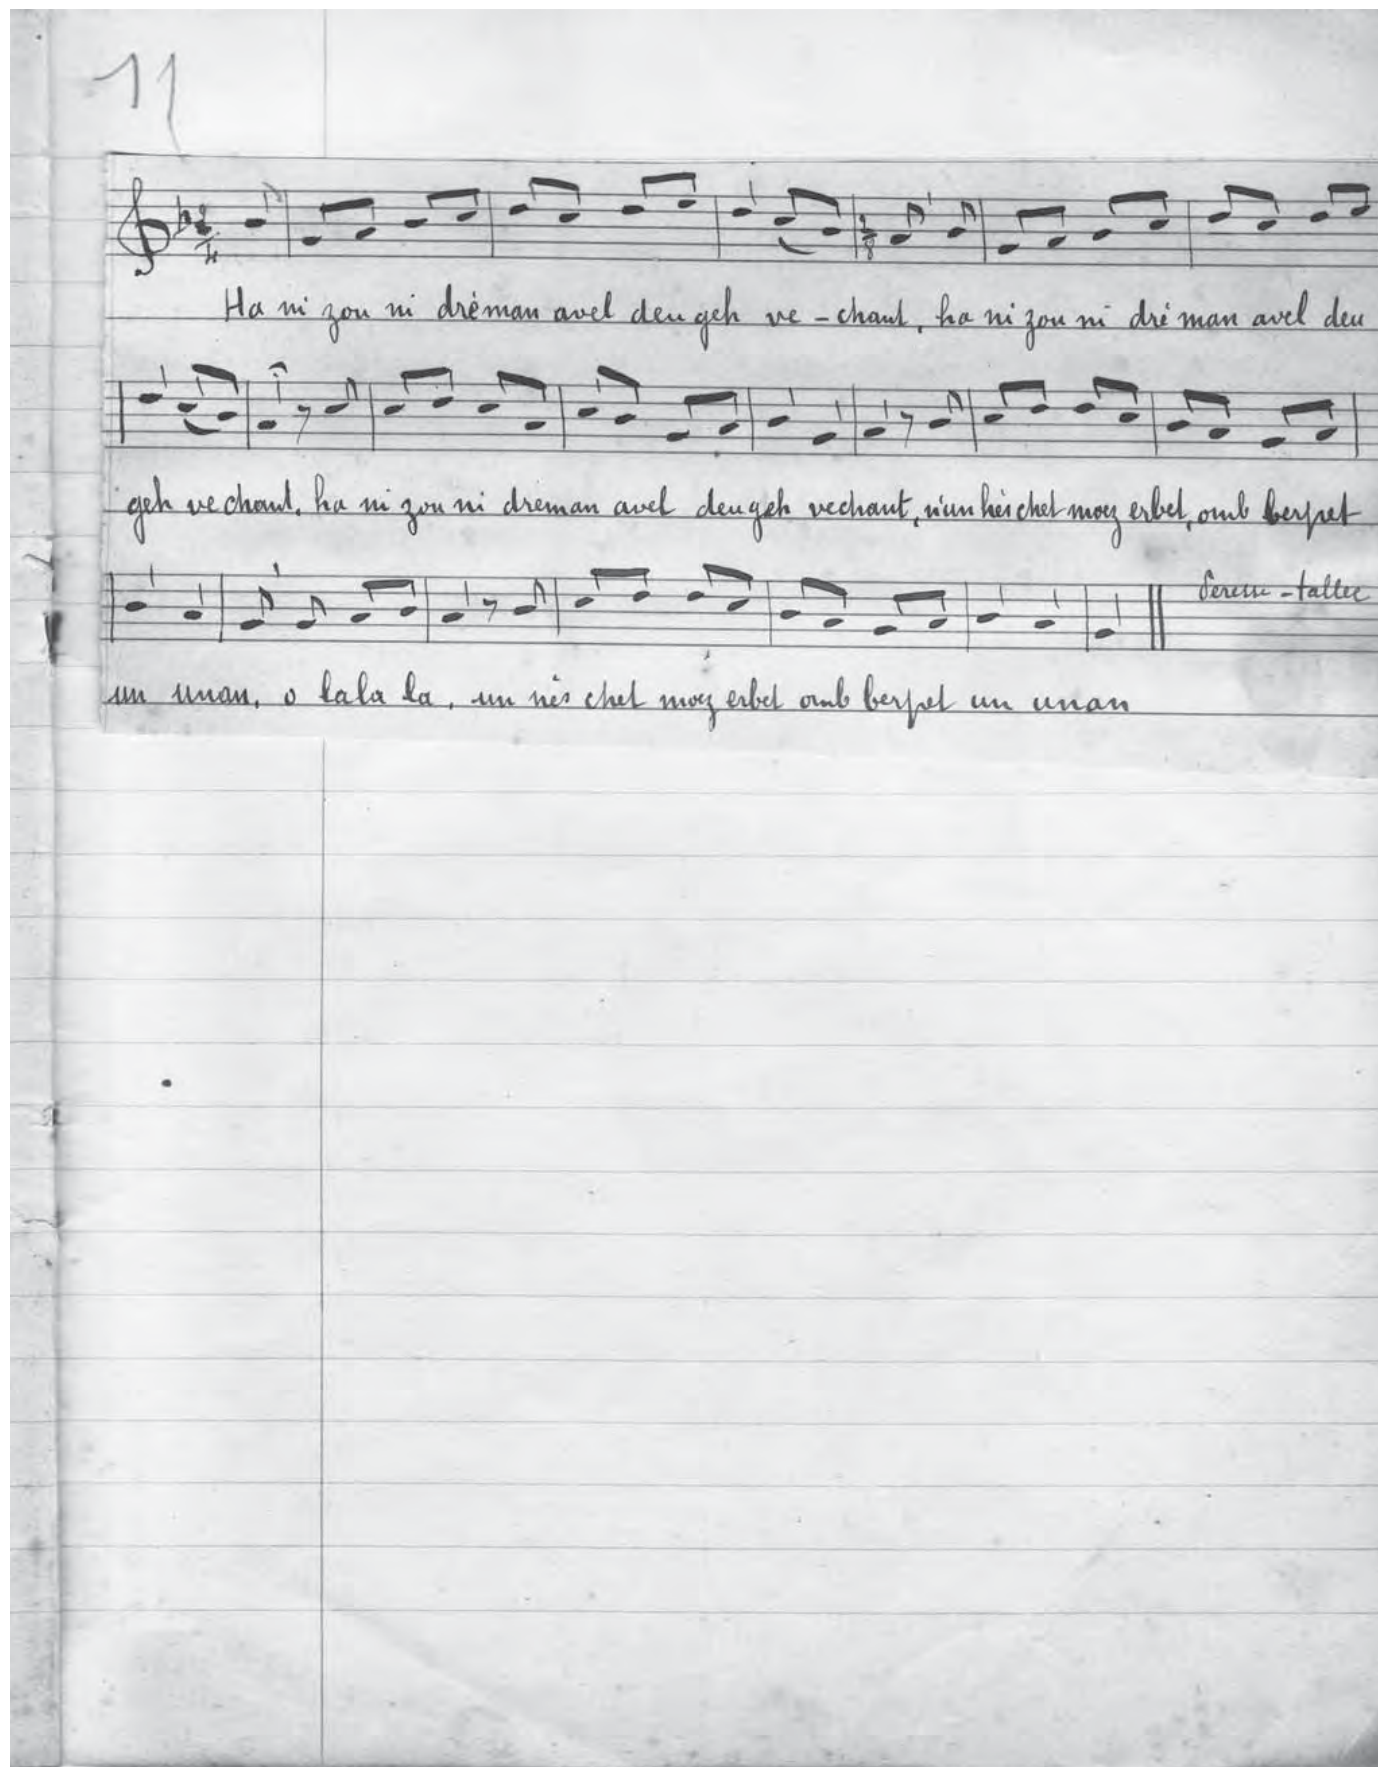 11
2/4
2/8
Ha ni zou ni dréman avel deu geh ve - chant, ha ni zou ni dré man avel deu
geh ve chant. ha ni zou ni dreman avel deu geh vechant, n'un hés chet moez erbet, omb berpet
- tallec
un unan, o la la la, un nés chet moez erbet omb berpet un unan